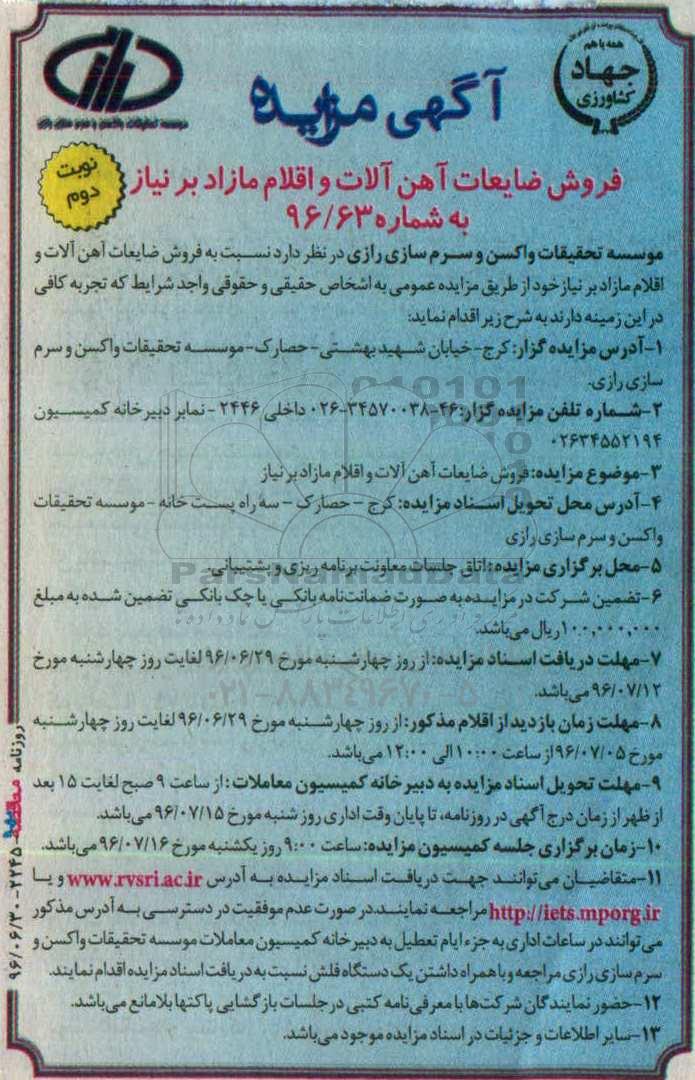 همه با هم
جهاد
کشاورزی
موسسه تحقیقات واکسن و سرم سازی رازی
آگهی مزایده
نوبت
دوم
فروش ضایعات آهن آلات و اقلام مازاد بر نیاز
به شماره ۹۶/۶۳
موسسه تحقیقات واکسن و سرم سازی رازی در نظر دارد نسبت به فروش ضایعات آهن آلات و
اقلام مازاد بر نیاز خود از طریق مزایده عمومی به اشخاص حقیقی و حقوقی واجد شرایط که تجربه کافی
در این زمینه دارند به شرح زیر اقدام نماید:
۱-آدرس مزایده گزار: کرج-خیابان شهید بهشتی-حصارک-موسسه تحقیقات واکسن و سرم
سازی رازی.
۲-شماره تلفن مزایده گزار: ۴۶-۳۴۵۷۰۰۳۸-۰۲۶ داخلی ۲۴۴۶ - نمابر دبیرخانه کمیسیون
۰۲۶۳۴۵۵۲۱۹۴
۳-موضوع مزایده: فروش ضایعات آهن آلات و اقلام مازاد بر نیاز
۴-آدرس محل تحویل اسناد مزایده: کرج - حصارک - سه راه پست خانه - موسسه تحقیقات
واکسن و سرم سازی رازی
۵-محل برگزاری مزایده: اتاق جلسات معاونت برنامه ریزی و پشتیبانی.
ParsNamadData
۶-تضمین شرکت در مزایده به صورت ضمانت‌نامه بانکی یا چک بانکی تضمین شده به مبلغ
۱۰۰,۰۰۰,۰۰۰ ریال می‌باشد.
۷-مهلت دریافت اسناد مزایده: از روز چهارشنبه مورخ ۹۶/۰۶/۲۹ لغایت روز چهارشنبه مورخ
۹۶/۰۷/۱۲ می‌باشد.
۰۲۱-۸۸۳۴۹۶۷۰-۵
۸-مهلت زمان بازدید از اقلام مذکور: از روز چهارشنبه مورخ ۹۶/۰۶/۲۹ لغایت روز چهارشنبه
مورخ ۹۶/۰۷/۰۵ از ساعت ۱۰:۰۰ الی ۱۲:۰۰ می‌باشد.
۹-مهلت تحویل اسناد مزایده به دبیرخانه کمیسیون معاملات: از ساعت ۹ صبح لغایت ۱۵ بعد
از ظهر از زمان درج آگهی در روزنامه، تا پایان وقت اداری روز شنبه مورخ ۹۶/۰۷/۱۵ می‌باشد.
۱۰-زمان برگزاری جلسه کمیسیون مزایده: ساعت ۹:۰۰ روز یکشنبه مورخ ۹۶/۰۷/۱۶ می‌باشد.
۱۱-متقاضیان می‌توانند جهت دریافت اسناد مزایده به آدرس www.rvsri.ac.ir و یا
http://iets.mporg.ir مراجعه نمایند. در صورت عدم موفقیت در دسترسی به آدرس مذکور
می‌توانند در ساعات اداری به جزء ایام تعطیل به دبیرخانه کمیسیون معاملات موسسه تحقیقات واکسن و
سرم سازی رازی مراجعه و با همراه داشتن یک دستگاه فلش نسبت به دریافت اسناد مزایده اقدام نمایند.
۱۲-حضور نمایندگان شرکت‌ها با معرفی‌نامه کتبی در جلسات بازگشایی پاکتها بلامانع می‌باشد.
۱۳-سایر اطلاعات و جزئیات در اسناد مزایده موجود می‌باشد.
روزنامه ۲۲۴۵-۹۶/۰۶/۳۰